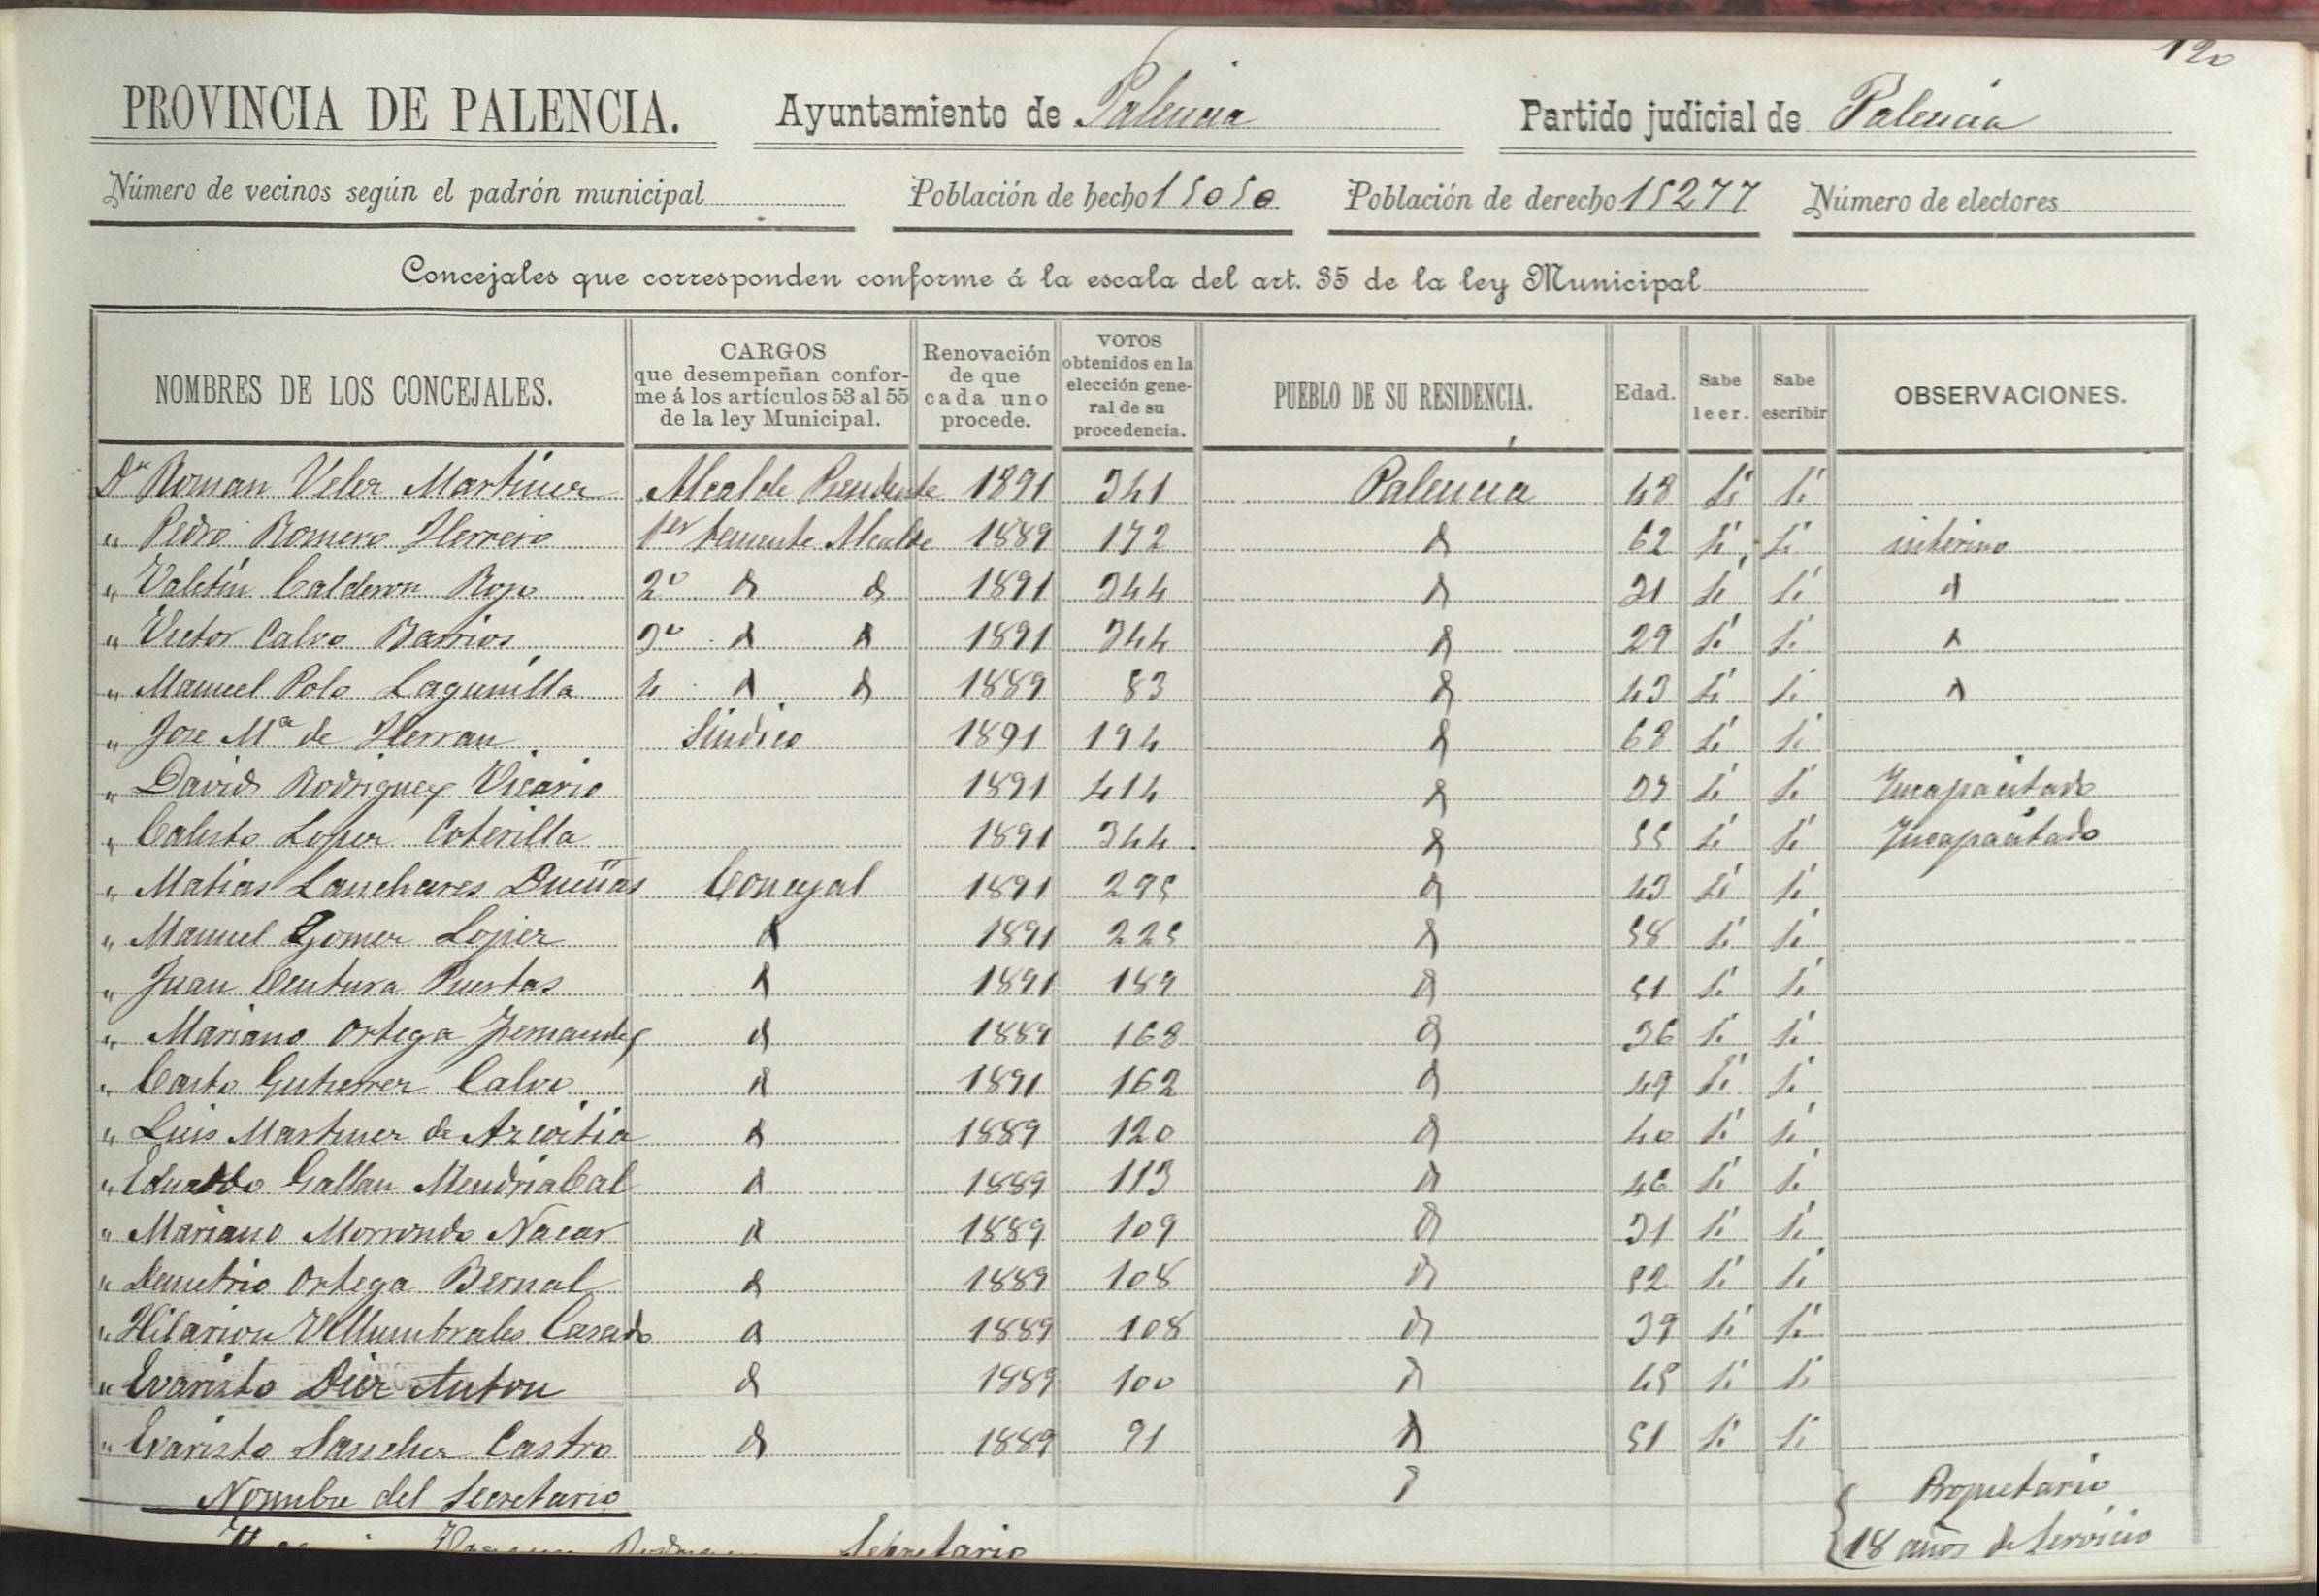 120
PROVINCIA DE PALENCIA. Ayuntamiento de Palencia Partido judicial de Palencia
Número de vecinos según el padrón municipal Población de hecho 15050 Población de derecho 15277 Número de electores
Concejales que corresponden conforme á la escala del art. 35 de la ley Municipal
NOMBRES DE LOS CONCEJALES. CARGOS que desempeñan conforme á los artículos 53 al 55 de la ley Municipal. Renovación de que cada uno procede. VOTOS obtenidos en la elección general de su procedencia. PUEBLO DE SU RESIDENCIA. Edad. Sabe leer. Sabe escribir OBSERVACIONES.
Dn Roman Velez Martinez Alcalde Presidente 1891 341 Palencia 48 Si Si
" Pedro Romero Herrero 1er teniente Alcalde 1889 172 d 62 Si Si interino
" Valetín Calderon Rojo 2º d d 1891 344 d 31 Si Si d
" Victor Calvo Barrios 3º d d 1891 344 d 29 Si Si d
" Manuel Polo Lagunilla 4 d d 1889 83 d 43 Si Si d
" Jose Mª de Herran Sindico 1891 194 d 68 Si Si
" David Rodriguez Vicario 1891 414 d 37 Si Si Incapacitado
" Calisto Lopez Coterilla 1891 344 d 55 Si Si Incapacitado
" Matias Lanchares Dueñas Concejal 1891 295 d 43 Si Si
" Manuel Gomez Lopez d 1891 225 d 58 Si Si
" Juan Ventura Puertas d 1891 189 d 51 Si Si
" Mariano Ortega Fernandez d 1889 168 d 36 Si Si
" Casto Gutierrez Calvo d 1891 162 d 49 Si Si
" Luis Martinez de Azcoitia d 1889 120 d 40 Si Si
" Eduardo Gallan Mendriabal d 1889 113 d 46 Si Si
" Mariano Morrondo Nacar d 1889 109 d 31 Si Si
" Demetrio Ortega Bernal d 1889 108 d 52 Si Si
" Hilarion Villumbrales Casado d 1889 108 d 39 Si Si
" Evaristo Diez Anton d 1889 100 d 45 Si Si
" Evaristo Sanchez Castro d 1889 91 d 51 Si Si
Nombre del Secretario d Propietario
Secretario 18 años de Servicio